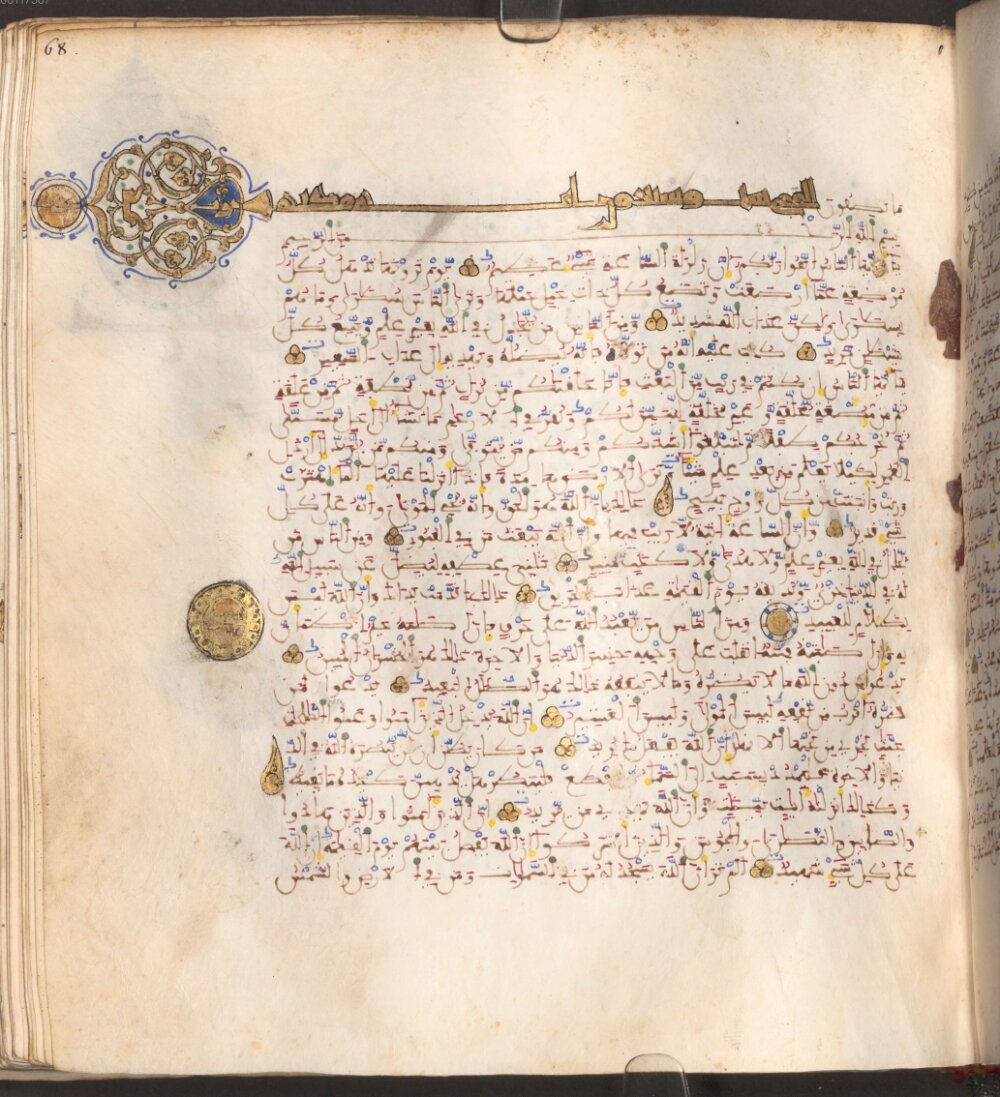 68.
ما تصفون
بسم الله الرحمن الرحيم
يا أيها الناس اتقوا ربكم إن زلزلة الساعة شيء عظيم يوم ترونها تذهل كل
مرضعة عما أرضعت وتضع كل ذات حمل حملها وترى الناس سكارى وما هم
بسكارى ولكن عذاب الله شديد ومن الناس من يجادل في الله بغير علم ويتبع كل
شيطان مريد كتب عليه أنه من تولاه فأنه يضله ويهديه إلى عذاب السعير
يا أيها الناس إن كنتم في ريب من البعث فإنا خلقناكم من تراب ثم من نطفة ثم من علقة
ثم من مضغة مخلقة وغير مخلقة لنبين لكم ونقر في الأرحام ما نشاء إلى أجل مسمى
ثم نخرجكم طفلا ثم لتبلغوا أشدكم ومنكم من يتوفى ومنكم من يرد إلى أرذل
العمر لكيلا يعلم من بعد علم شيئا وترى الأرض هامدة فإذا أنزلنا عليها الماء اهتزت
وربت وأنبتت من كل زوج بهيج ذلك بأن الله هو الحق وأنه يحي الموتى وأنه على كل
شيء قدير وأن الساعة آتية لا ريب فيها وأن الله يبعث من في القبور ومن الناس من
يجادل في الله بغير علم ولا هدى ولا كتاب منير ثاني عطفه ليضل عن سبيل الله
له في الدنيا خزي ونذيقه يوم القيامة عذاب الحريق ذلك بما قدمت يداك وأن الله ليس
بظلام للعبيد ومن الناس من يعبد الله على حرف فإن أصابه خير اطمأن
به وإن أصابته فتنة انقلب على وجهه خسر الدنيا والآخرة ذلك هو الخسران المبين
يدعو من دون الله ما لا يضره وما لا ينفعه ذلك هو الضلال البعيد يدعو لمن
ضره أقرب من نفعه لبئس المولى ولبئس العشير إن الله يدخل الذين آمنوا وعملوا الصالحات
جنات تجري من تحتها الأنهار إن الله يفعل ما يريد من كان يظن أن لن ينصره الله في الد
نيا والآخرة فليمدد بسبب إلى السماء ثم ليقطع فلينظر هل يذهبن كيده ما يغيظ
وكذلك أنزلناه آيات بينات وأن الله يهدي من يريد إن الذين آمنوا والذين هادوا
والصابين والنصارى والمجوس والذين أشركوا إن الله يفصل بينهم يوم القيامة إن الله
على كل شيء شهيد ألم تر أن الله يسجد له من في السماوات ومن في الأرض والشمس